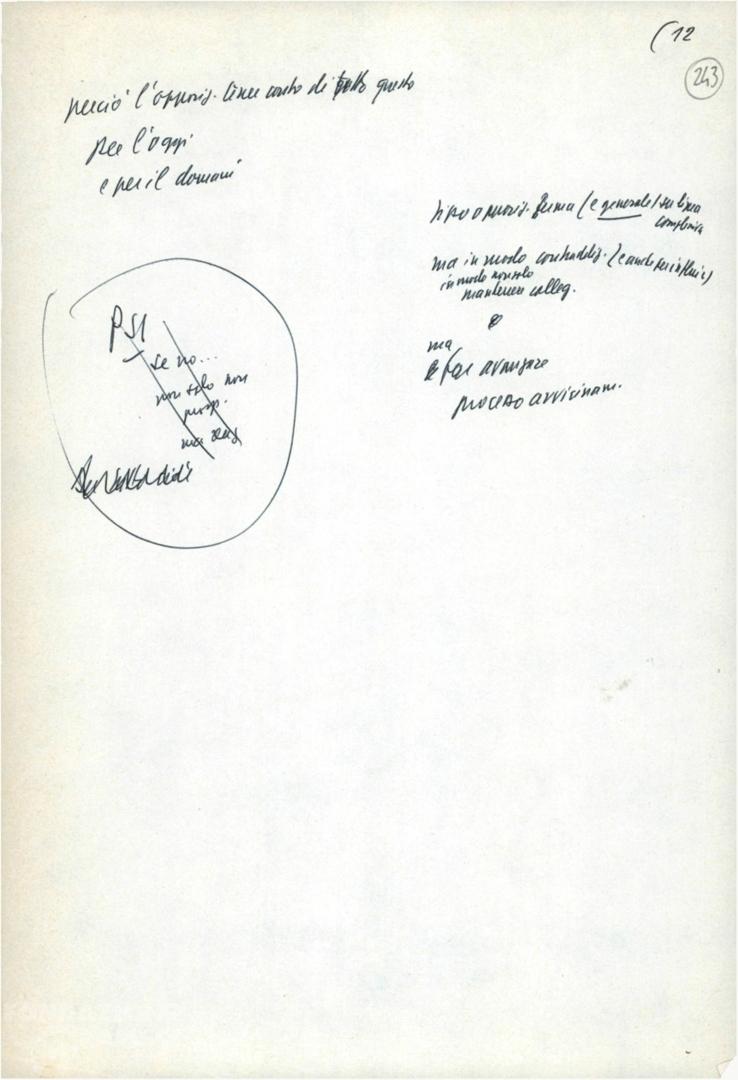 (12
243
perciò l'opposiz. tiene conto di tutto questo
per l'oggi
e per il domani
opposiz. ferma (e generale) su linea
complessiva
ma in modo contraddiz. (e anche per influire)
in modo non solo
mantenere colleg.
ma
far avanzare
processo avvicinam.
PSI
se no...
non solo non
prosp.
ma